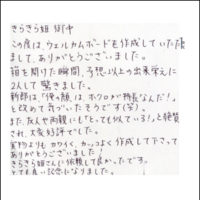 きらきら姫 御中
この度は、ウェルカムボードを作成していた頂き
まして、ありがとうございました。
箱を開けた瞬間、予想以上の出来栄えに
2人して驚きました。
新郎は「俺の顔は、ホクロが特長なんだ!」
と改めて気づいたそうです(笑)。
また、友人や両親にも「とっても似ている!!」と絶賛
され、大変好評でした。
実物よりも カワイく、カッコよく 作成して下さって
ありがとうございました!
きらきら姫さんに依頼して良かったです。
とても良い記念になりました。